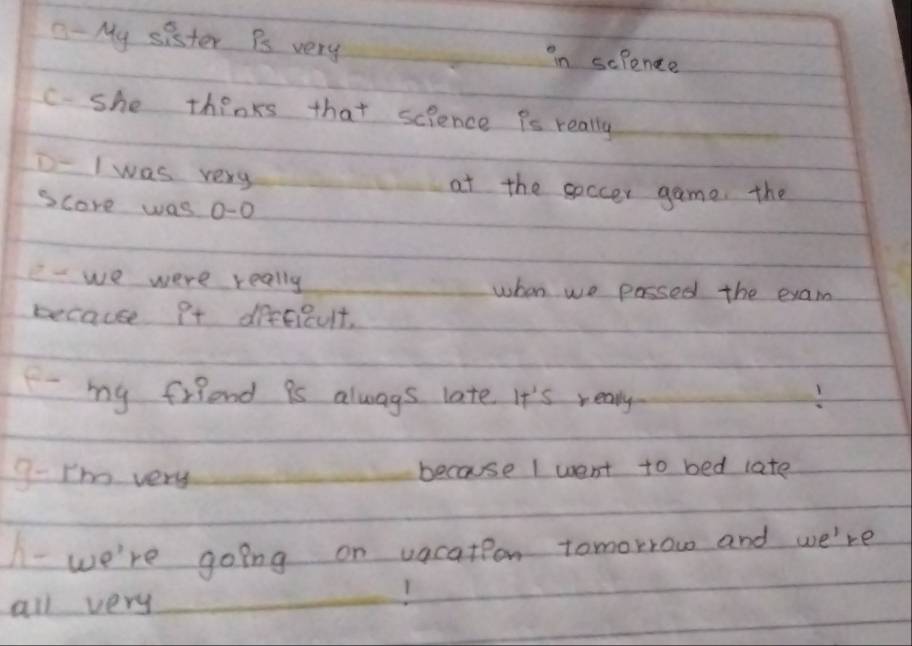 a- My sister is very __________ in science
C- she thinks that science is really __________
D- I was very __________ at the soccer game. the
score was 0-0
e- we were really __________ when we passed the exam
because it difficult.
F- my friend is always late. It's really __________!
g- I'm very __________ because I went to bed late
h- we're going on vacation tomorrow and we're
all very __________!